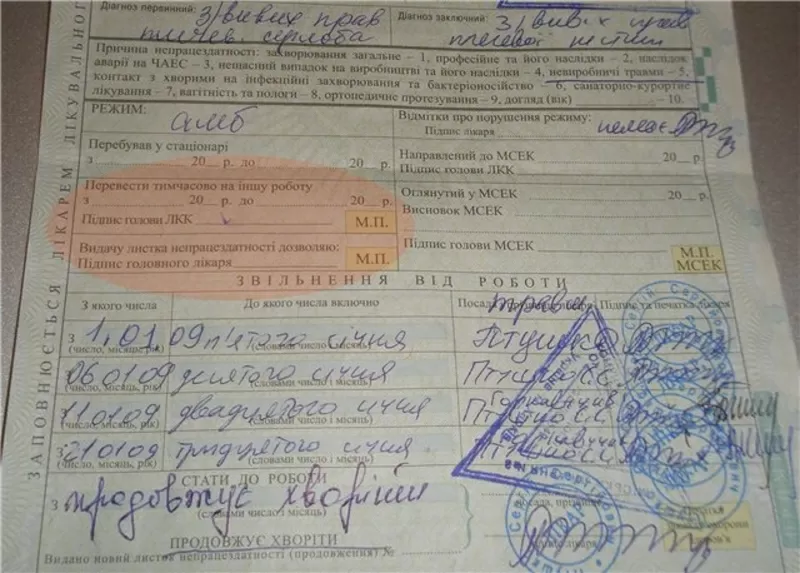 Діагноз первинний: З/вивих прав
Діагноз заключний: З/вивих
плечової
Причина непрацездатності: захворювання загальне – 1, професійне та його наслідки – 2, наслідок
аварії на ЧАЕС – 3, нещасний випадок на виробництві та його наслідки – 4, невиробничі травми – 5,
контакт з хворими на інфекційні захворювання та бактеріоносійство – 6, санаторно-курортне
лікування – 7, вагітність та пологи – 8, ортопедичне протезування – 9, догляд (вік) – 10.
РЕЖИМ:
амб
Відмітки про порушення режиму:
Підпис лікаря немає
Перебував у стаціонарі
з 20 р. до 20 р.
Направлений до МСЕК 20 р.
Підпис голови ЛКК
Перевести тимчасово на іншу роботу
з 20 р. до 20 р.
Підпис голови ЛКК М.П.
Оглянутий у МСЕК 20 р.
Висновок МСЕК
Видачу листка непрацездатності дозволяю:
Підпис головного лікаря М.П.
Підпис голови МСЕК
М.П.
МСЕК
ЗВІЛЬНЕННЯ ВІД РОБОТИ
З якого числа До якого числа включно Підпис та печатка лікаря
З 1.01 09 п'ятого січня
(число, місяць, рік) (словами число і місяць)
06 01 09 десятого січня
(число, місяць, рік) (словами число і місяць)
11 01 09 двадцятого січня
(число, місяць, рік) (словами число і місяць)
21 01 09 тридцятого січня
(число, місяць, рік) (словами число і місяць)
СТАТИ ДО РОБОТИ
З продовжує хворіти
(словами число і місяць)
ПРОДОВЖУЄ ХВОРІТИ
Видано новий листок непрацездатності (продовження) №
ЗАПОВНЮЄТЬСЯ ЛІКАРЕМ ЛІКУВАЛЬНОГО